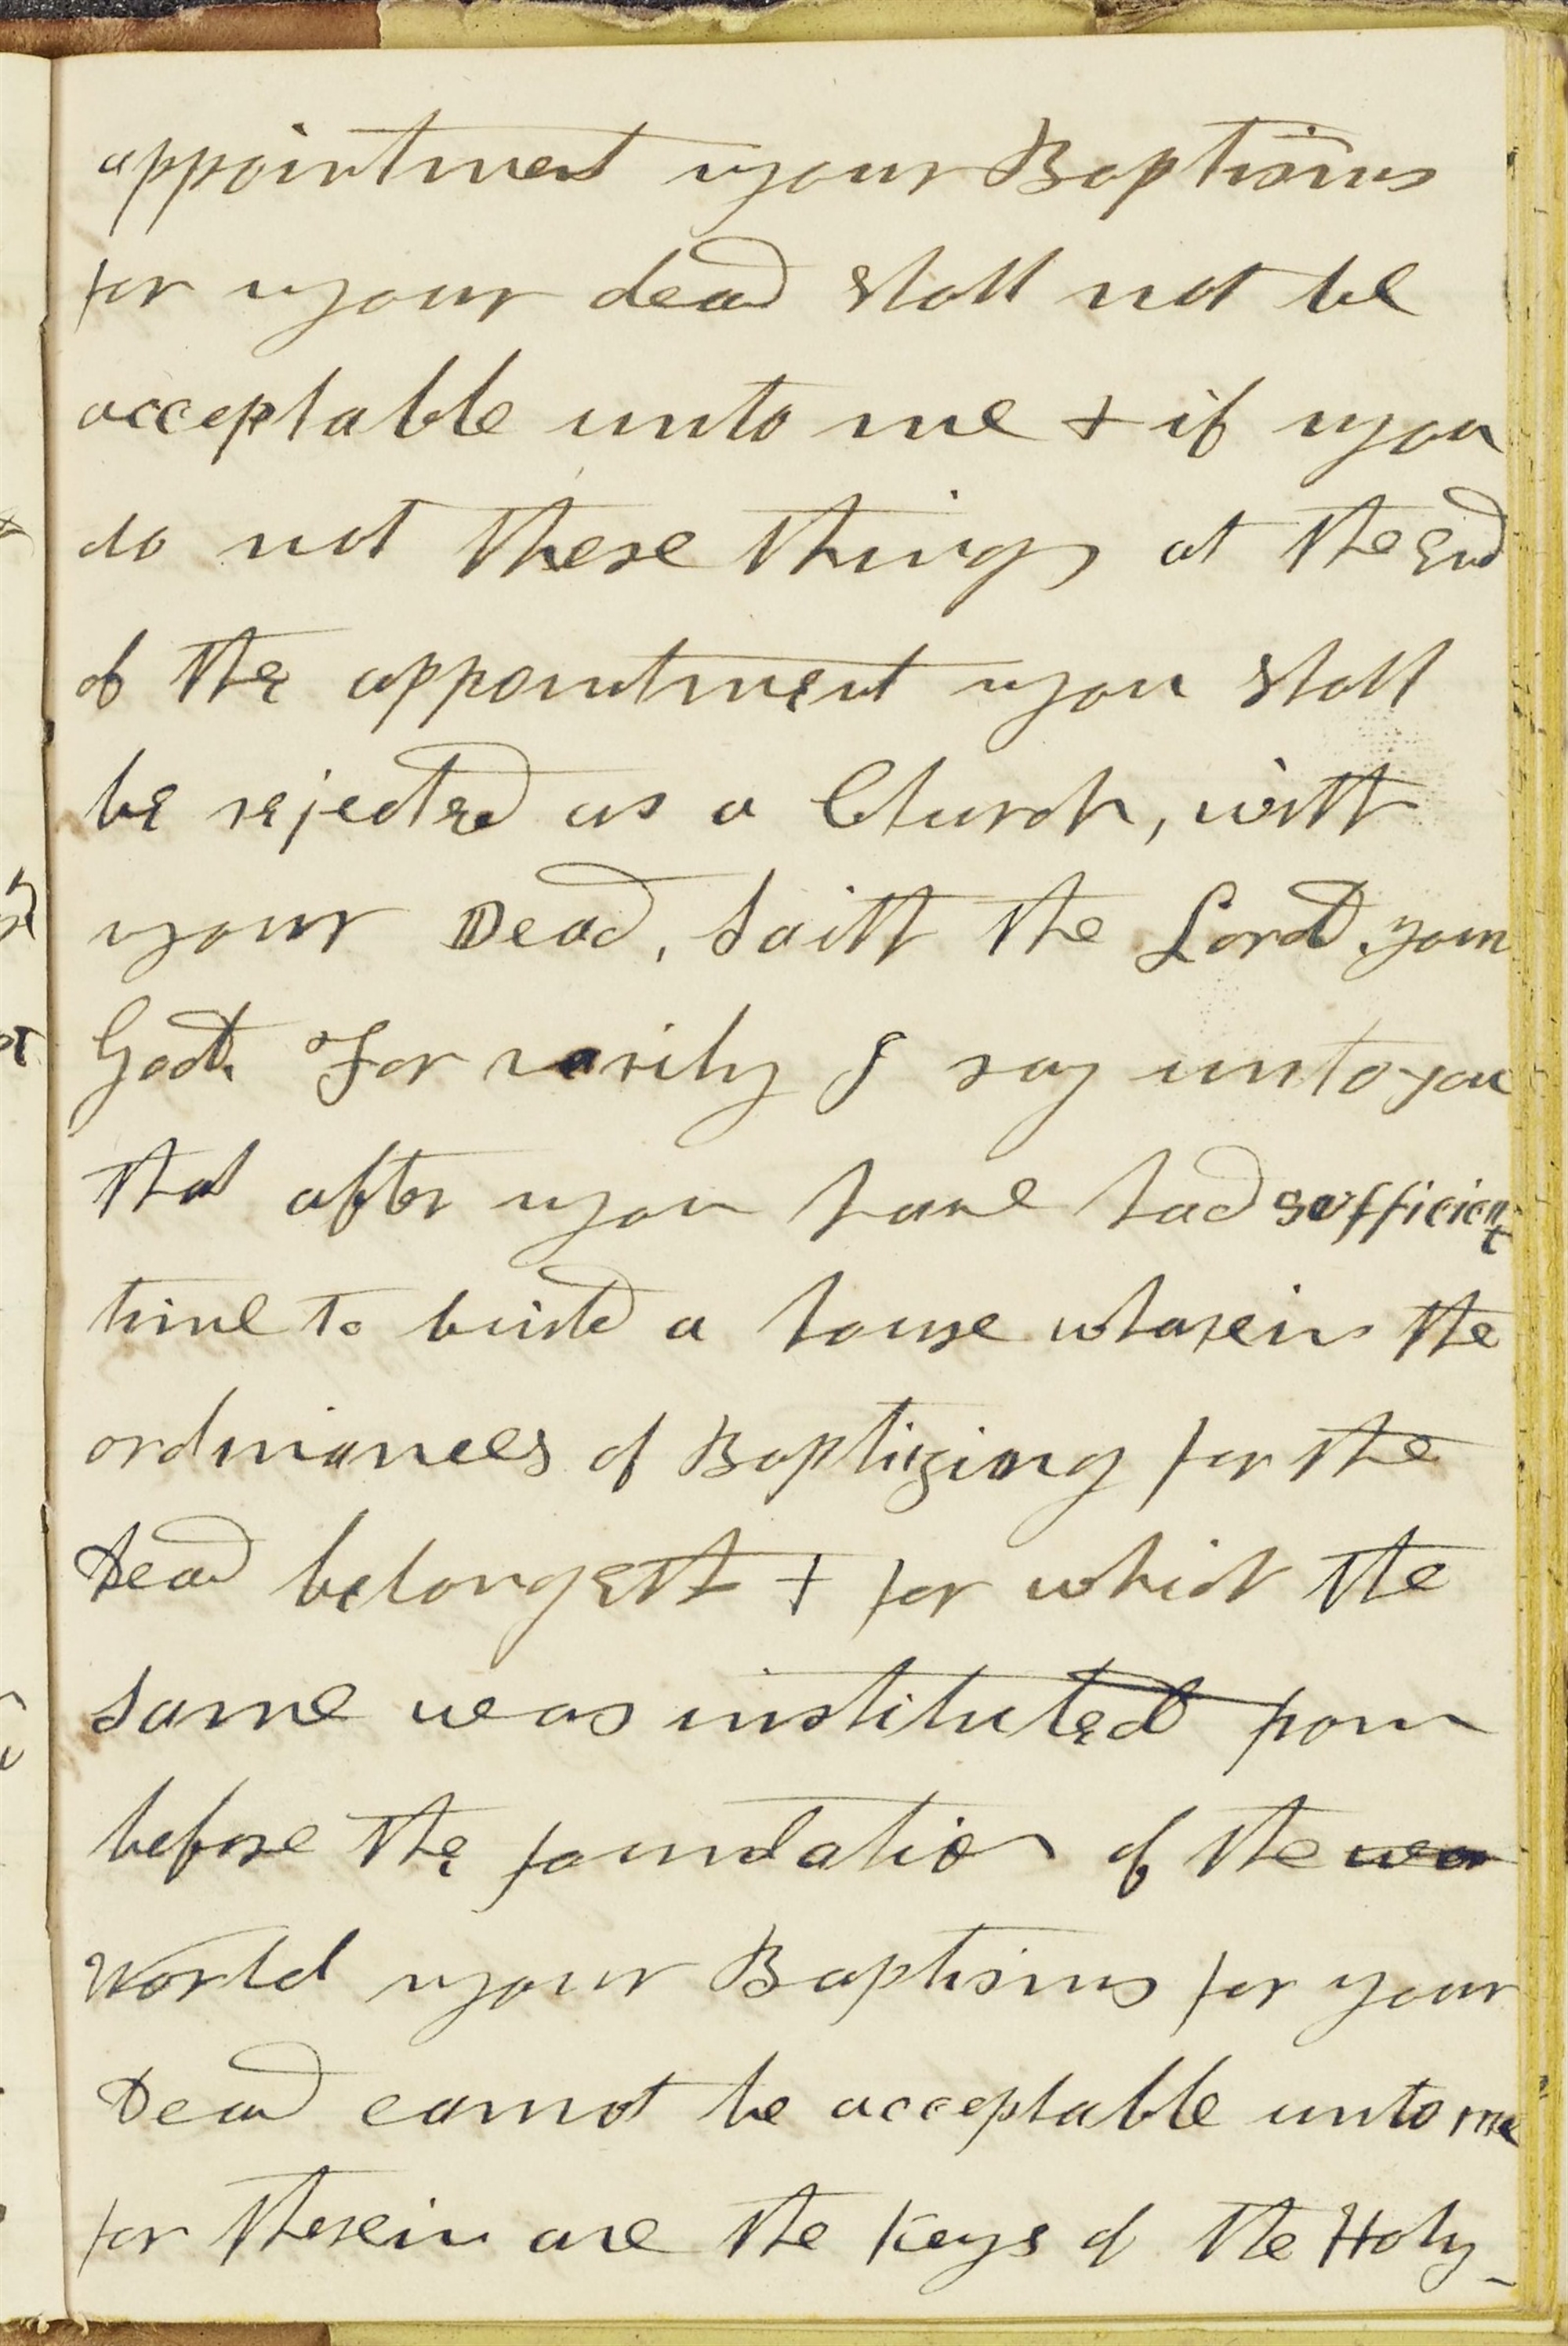 appointment your Baptisms
for your dead shall not be
acceptable unto me & if you
do not these things at the End
of the appointment you shall
be rejected as a Church, with
your Dead, saith the Lord your
God. For verily I say unto you
that after you have had sufficient
time to build a house wharein the
ordinances of Baptizing for the
Dead belongeth & for which the
same was instituted from
before the foundation of the wor
World your Baptisms for your
Dead cannot be acceptable unto me
for therein are the Keys of the Holy